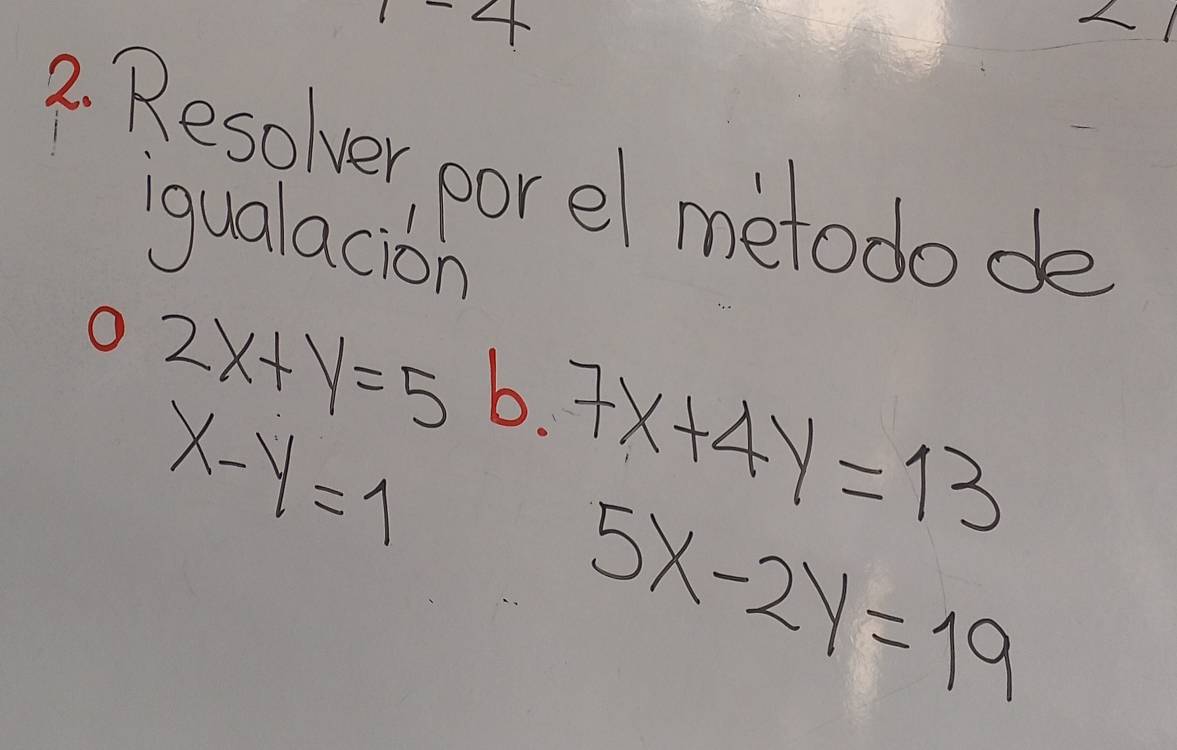 - 4
2. Resolver por el método de
igualación
a 2x+y=5 b. 7x+4y=13
x-y=1
5x-2y=19